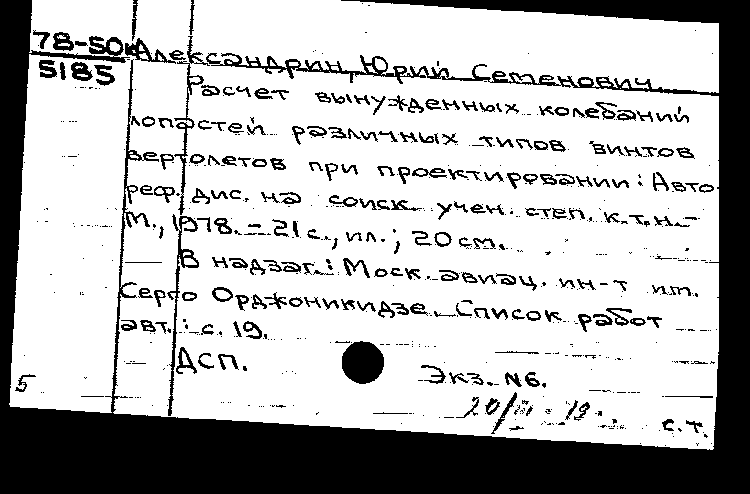 78-50к Александрин, Юрий Семенович.
5185
Расчет вынужденных колебаний
лопастей различных типов винтов
вертолетов при проектировании: Авто-
реф. дис. на соиск. учен. степ. к.т.н.-
М., 1978. - 21 с., ил.; 20 см.
В надзаг.: Моск. авиац. ин-т им.
Серго Орджоникидзе. Список работ
авт.: с. 19.
ДСП.
Экз. N6.
5
20/III-
с.т.